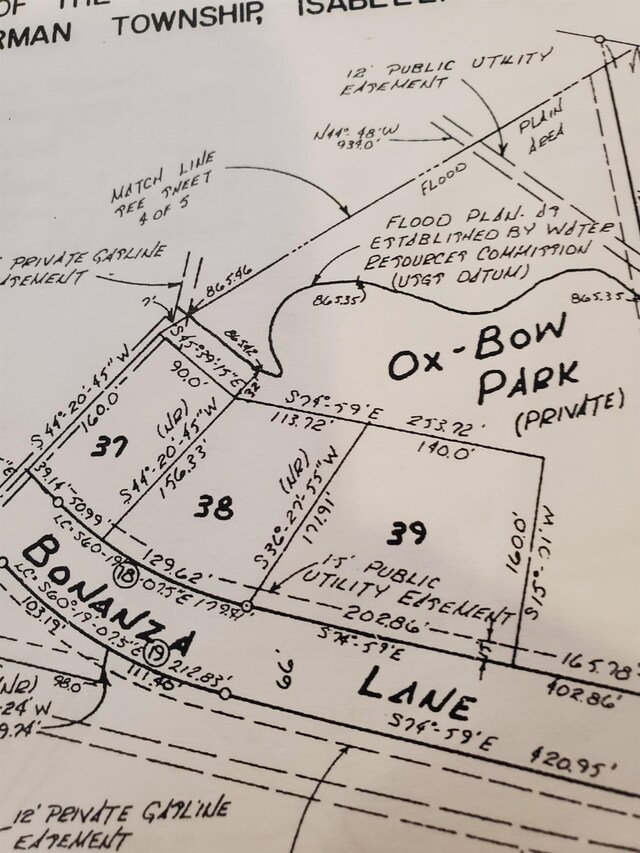 OF THE
RMAN TOWNSHIP, ISABELL
12' PUBLIC UTILITY
EASEMENT
N44°-48'W
939.0'
PLAIN
AREA
FLOOD
MATCH LINE
SEE SHEET
4 OF 5
FLOOD PLAN. AS
ESTABLISHED BY WATER
RESOURCES COMMISSION
(USGS DATUM)
PRIVATE GASLINE
865.46
865.35
865.35
865.42
OX-BOW
PARK
(PRIVATE)
S45°-39'-15"E
90.0'
32'
S44°-20'-45"W
160.0'
37
(NR)
S44°-20'-45"W
156.33'
S74°-59'E
253.72'
113.72'
140.0'
38
(NR)
S36°-27'-55"W
171.91'
39
160.0'
N.IC.-S15°
39.14'
50.99'
LC= S60-19
18
-07.5"E 179.41'
129.62'
15' PUBLIC
UTILITY EASEMENT
202.86'
S74°-59'E
15'
165.78'
402.86'
BONANZA
LC= S60°-19'-07.5"E
19
212.83'
103.19'
111.46'
66'
LANE
S74°-59'E
420.95'
(NR)
98.0'
-24'W
9.74'
12' PRIVATE GASLINE
EASEMENT